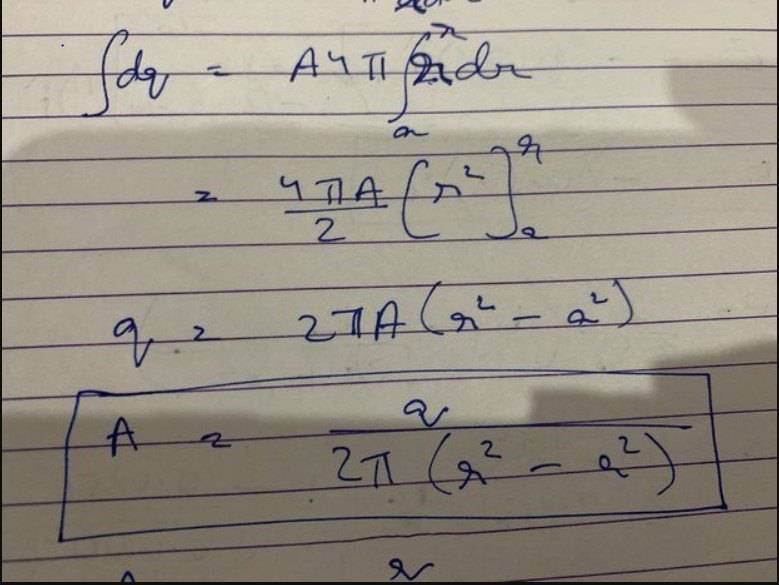 ∫dq = A4π ∫ₐʳ r dr
= 4πA/2 [r²]ₐʳ
q = 2πA(r² - a²)
A = q / 2π(r² - a²)